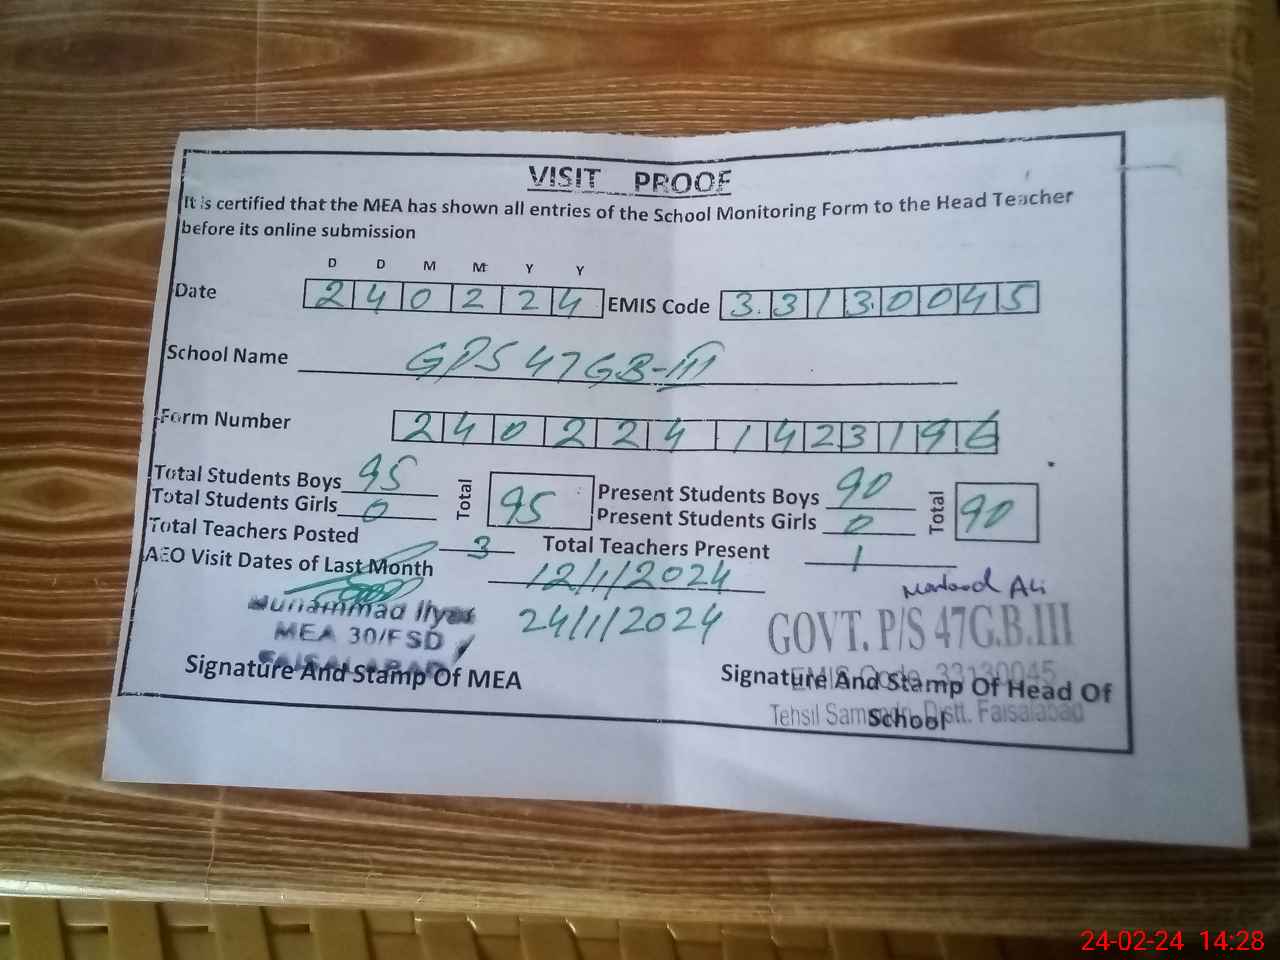 VISIT PROOF
It is certified that the MEA has shown all entries of the School Monitoring Form to the Head Teacher
before its online submission
D D M M Y Y
Date 240224 EMIS Code 33130045
School Name GPS 47GB-III
Form Number 2402241423196
Total Students Boys 95 Total 95 Present Students Boys 90 Total 90
Total Students Girls 0 Present Students Girls 0
Total Teachers Posted 3 Total Teachers Present 1
AEO Visit Dates of Last Month 12/1/2024
24/1/2024
Muhammad Ilyas
MEA 30/FSD
FAISALABAD
Signature And Stamp Of MEA
Ali
GOVT. P/S 47G.B.III
EMIS Code 33130045
Signature And Stamp Of Head Of
School
Tehsil Distt. Faisalabad
24-02-24 14:28